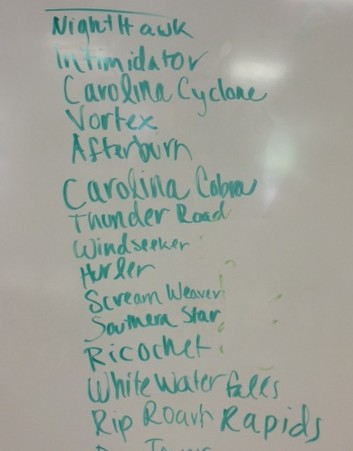 NightHawk
Intimidator
Carolina Cyclone
Vortex
Afterburn
Carolina Cobra
Thunder Road
Windseeker
Hurler
Scream Weaver
Southern Star
Ricochet
White Water falls
Rip Roarn Rapids